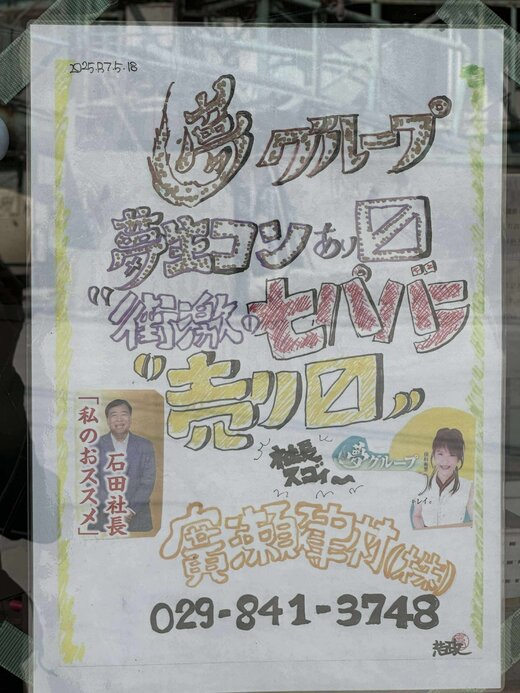 2025.R7.5.18
夢グループ
夢生コンあり〼
"衝激のセパリテ
"売り〼"
社長
スゴイ〜
「私のおススメ」
石田社長
夢グループ
廣瀬建材(株)
029-841-3748